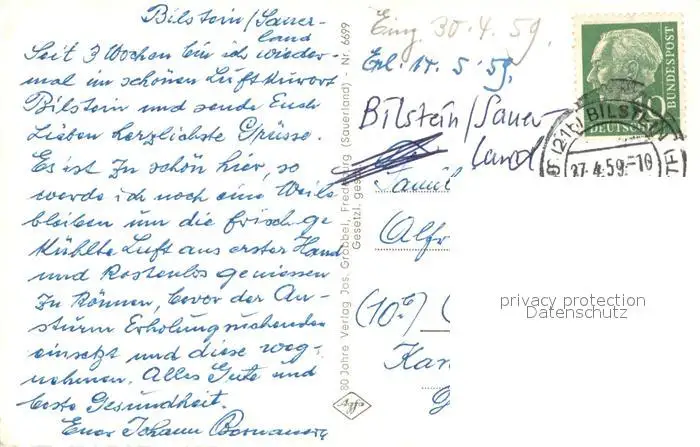 Bilstein/Sauer-
land
Seit 3 Wochen bin ich wieder-
mal im schönen Luftkurort
Bilstein und sende Euch
Lieben herzlichste Grüsse.
Es ist zu schön hier, so
werde ich noch eine Weile
bleiben um die frisch ge-
kühlte Luft aus erster Hand
und kostenlos geniessen
zu können, bevor der An-
sturm Erholungsuchender
einsetzt und diese weg-
nehmen. Alles Gute und
beste Gesundheit.
Euer Johann
80 Jahre Verlag Jos. Grobbel, Fredeburg (Sauerland) - Nr. 6699
Gesetzl. ges
Agfa
Eing 30.4.59.
Erl. 14.5.59.
Bilstein/Sauer-
land
Famil
Alfr
(10b)
Kar
DEUTSCHE
BUNDESPOST
10
(21b) BILSTEIN
27.4.59.-10
privacy protection
Datenschutz